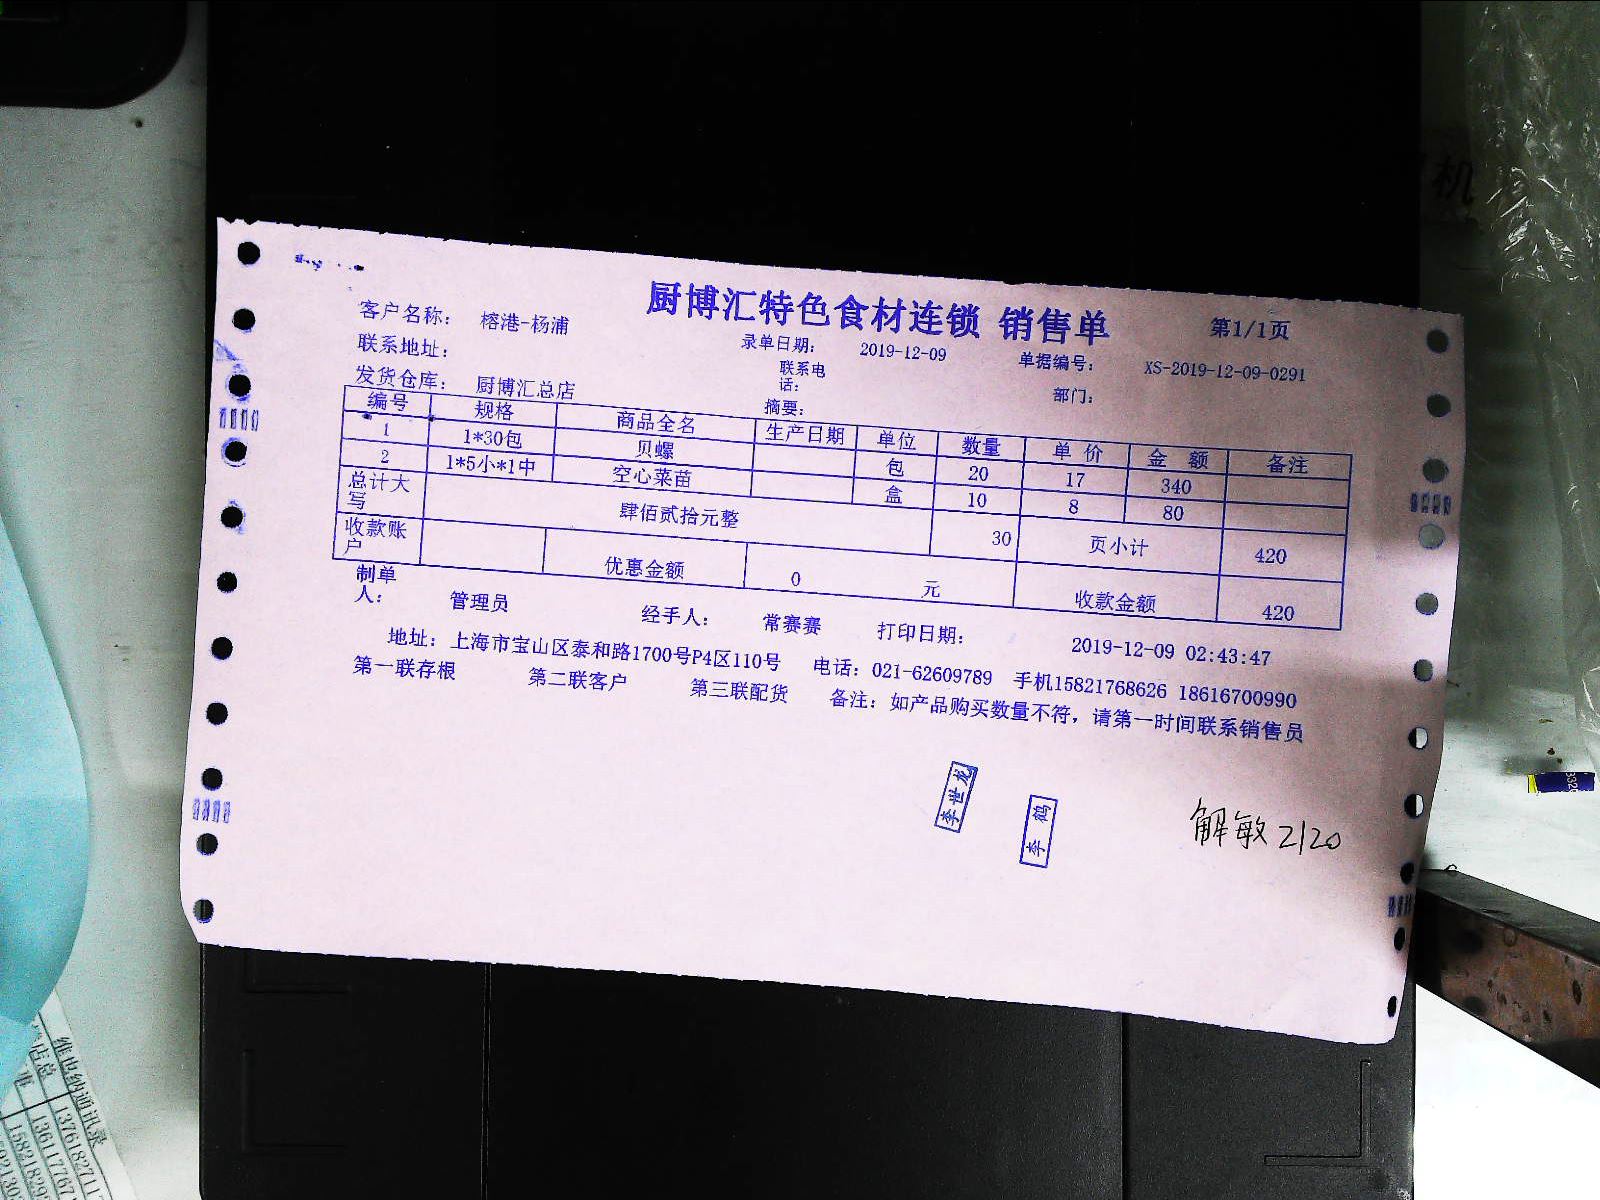 厨博汇特色食材连锁 销售单 第1/1页
客户名称： 榕港-杨浦 录单日期： 2019-12-09 单据编号： XS-2019-12-09-0291
联系地址： 联系电话： 部门：
发货仓库： 厨博汇总店 摘要：
编号 规格 商品全名 生产日期 单位 数量 单价 金额 备注
1 1*30包 贝螺 包 20 17 340
2 1*5小*1中 空心菜苗 盒 10 8 80
总计大写 肆佰贰拾元整 30 页小计 420
收款账户 优惠金额 0 元 收款金额 420
制单人： 管理员 经手人： 常赛赛 打印日期： 2019-12-09 02:43:47
地址：上海市宝山区泰和路1700号P4区110号 电话：021-62609789 手机15821768626 18616700990
第一联存根 第二联客户 第三联配货 备注：如产品购买数量不符，请第一时间联系销售员
李世龙
李鹤
解敏 2120
机
维也纳通讯录